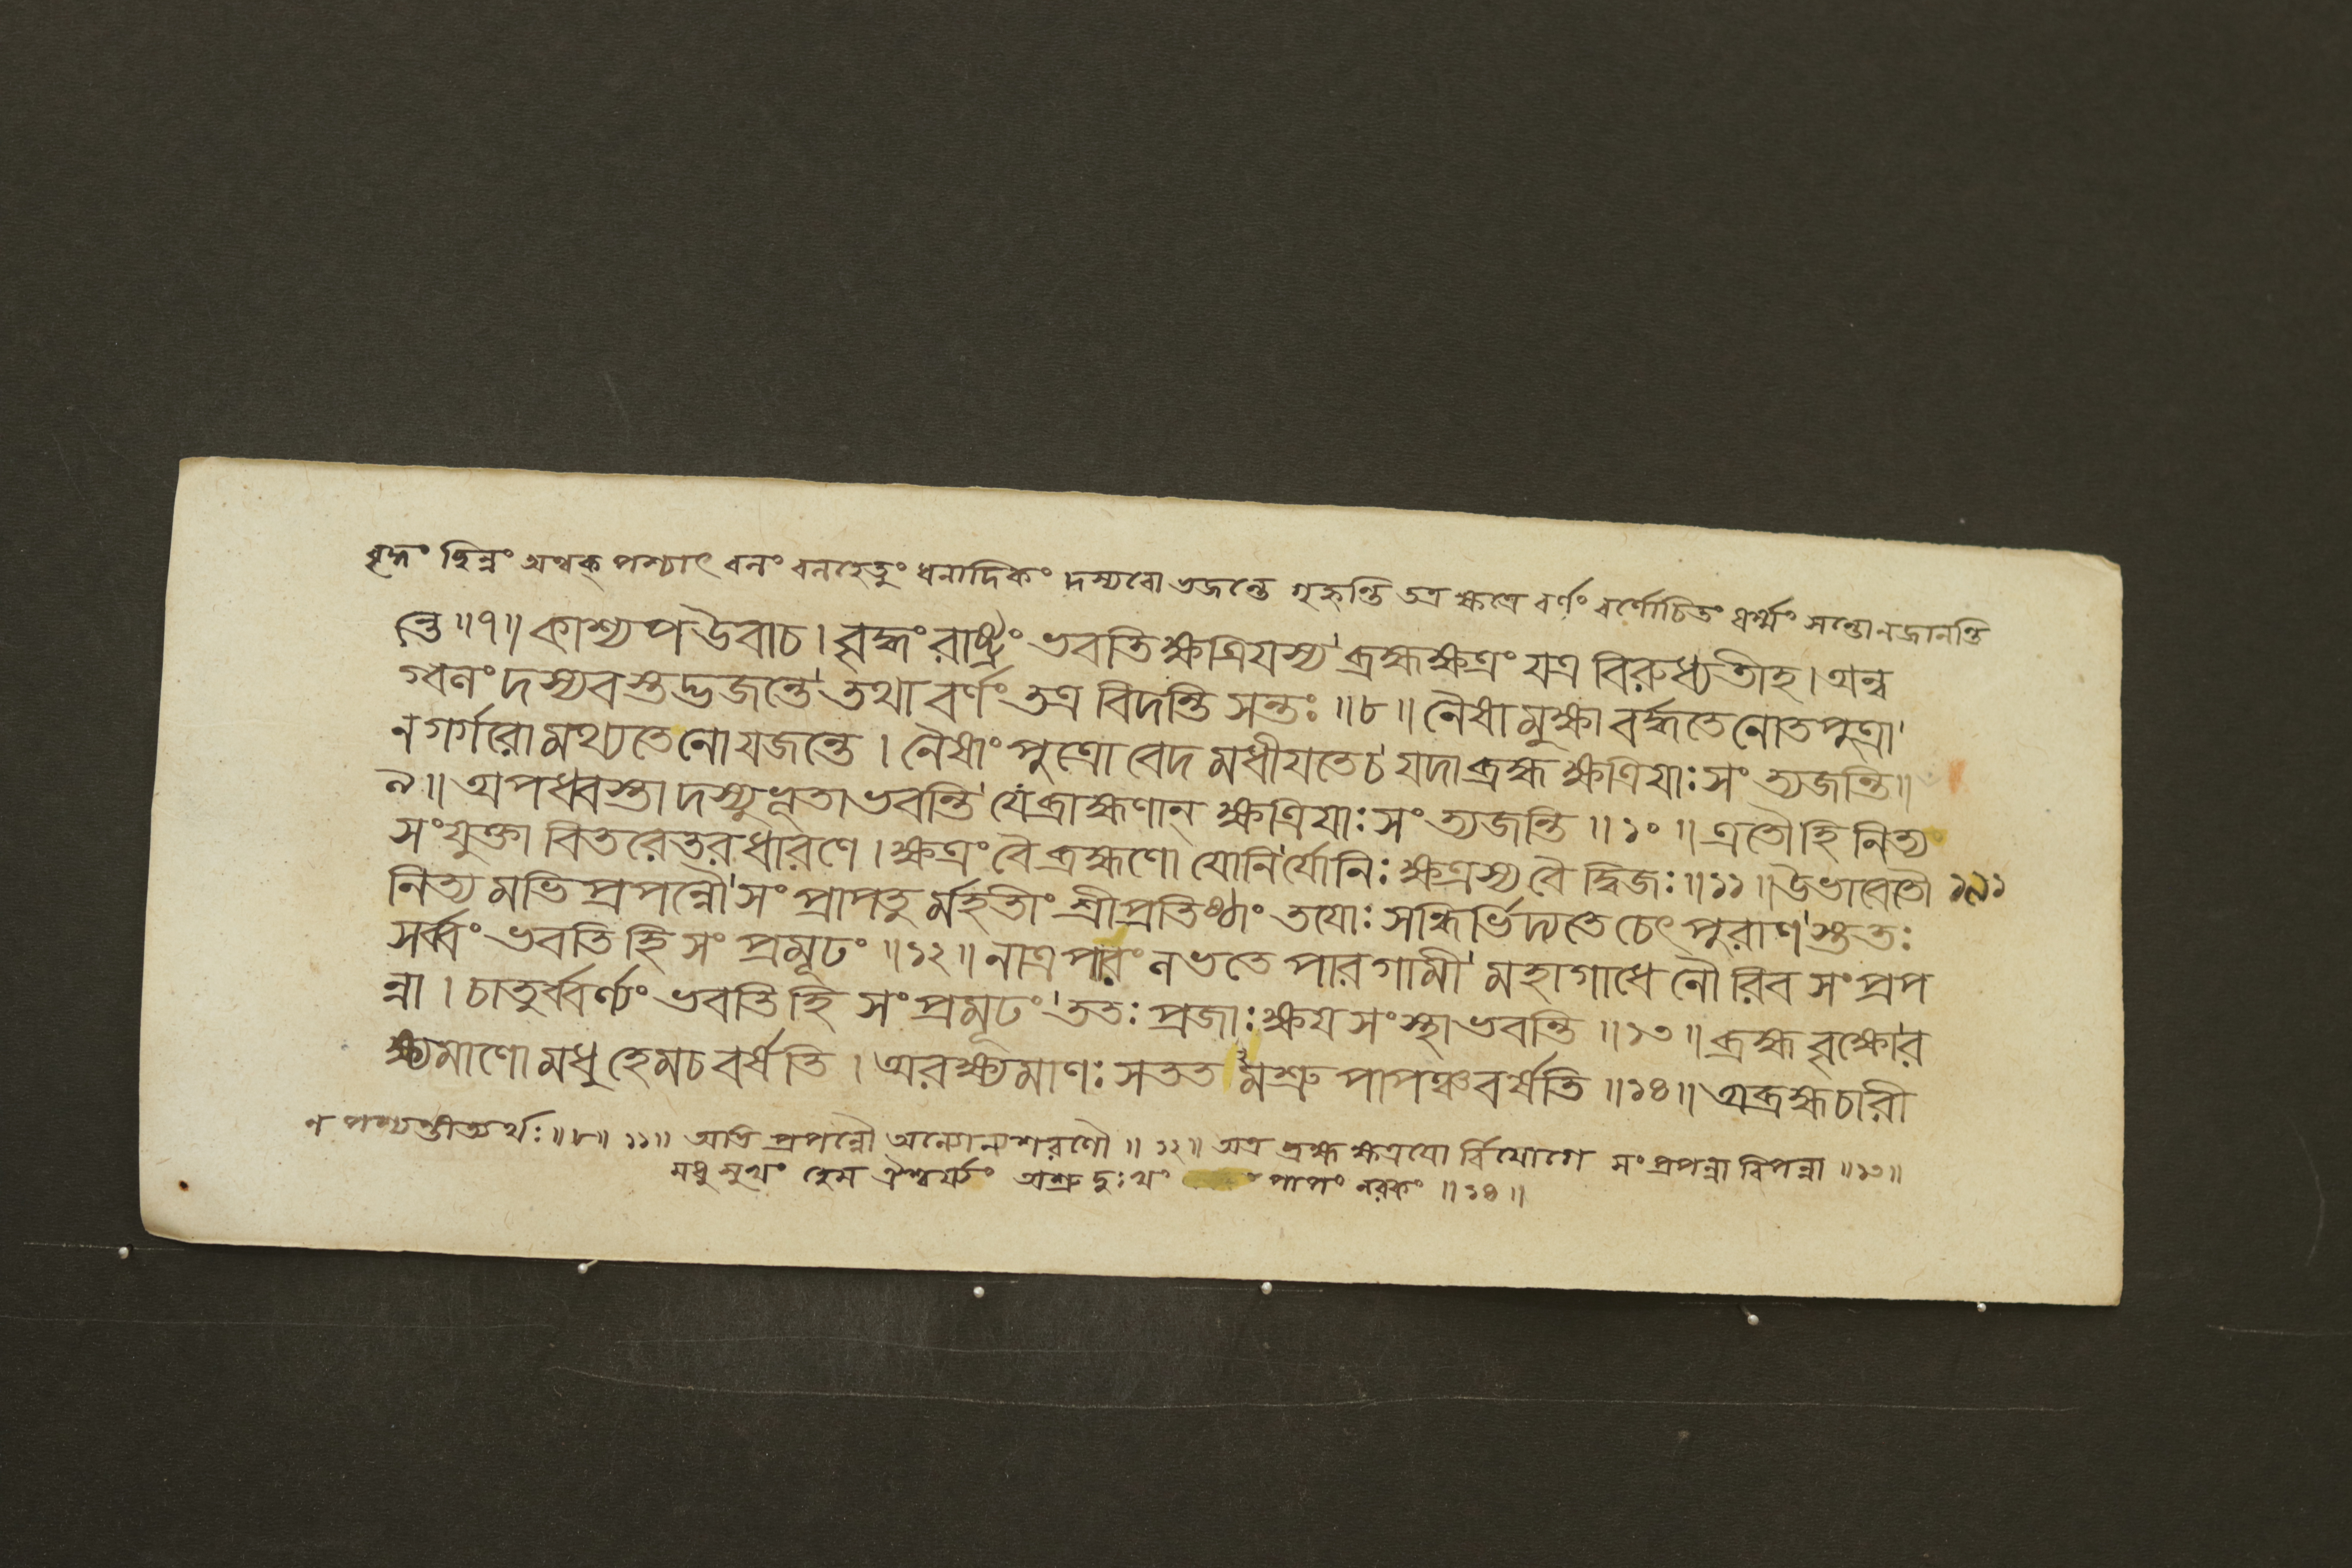 বৃহ্নং ছিন্নং অথক্ পশ্চাৎ বনং বনহেতুং ধনাদিকং দস্যবো ভজন্তে গৃহ্নন্তি তত্র ক্ষত্রে বর্ণং বর্ণোচিতং ধর্ম্মং সন্তোনজানন্তি
ন্তে ॥৭॥ কাশ্যপ উবাচ। বৃহ্নং রাষ্ট্রং ভবতি ক্ষত্রিযস্য ব্রহ্মক্ষত্রং যত্র বিরুধ্যতীহ। অন্ব
গ্বনং দস্যবস্তদ্ভজন্তে তথা বর্ণং তত্র বিদন্তি সন্তঃ ॥৮॥ নৈষামুক্ষা বর্দ্ধতে নোতপুত্রা
ন গর্গরো মথ্যতে নো যজন্তে। নৈষাং পুত্রো বেদ মধীযতেচ যদা ব্রহ্ম ক্ষত্রিযাঃ সং ত্যজন্তি॥
৯॥ অপধ্বস্তা দস্যুভূতা ভবন্তি যে ব্রাহ্মণান্ ক্ষত্রিযাঃ সং ত্যজন্তি ॥১০॥ এতৌহি নিত্য
সংযুক্তা বিতরেতরধারণে। ক্ষত্রং বৈ ব্রহ্মণো যোনির্যোনিঃ ক্ষত্রস্য বৈ দ্বিজঃ ॥১১॥ উভাবেতৌ ১৯১
নিত্য মভি প্রপন্নৌ সং প্রাপতু র্মহতীং শ্রীপ্রতিষ্ঠাং তযোঃ সন্ধির্ভিদ্যতে চেৎ পুরাণ স্ততঃ
সর্ব্বং ভবতি হি সং প্রমূঢং ॥১২॥ নাত্র পারং নভতে পারগামী মহাগাধে নৌরিব সংপ্রপ
ন্না। চাতুর্ব্বর্ণ্যং ভবতি হি সং প্রমূঢং ততঃ প্রজাঃ ক্ষয সংস্থা ভবন্তি ॥১৩॥ ব্রহ্ম বৃক্ষোর
ক্ষ্যমাণো মধু হেমচ বর্ষতি। অরক্ষ্যমাণঃ সতত মশ্রু পাপঞ্চ বর্ষতি ॥১৪॥ অব্রহ্মচারী
ন পশ্যন্তীত্যর্থঃ ॥৮॥ ১১॥ অভি প্রপন্নৌ অন্যোন্যশরণৌ ॥ ১২॥ অত্র ব্রহ্ম ক্ষত্রযো র্বিযোগে সং প্রপন্না বিপন্না ॥১৩॥
মধু সুখং হেম ঐশ্বর্য্যং অশ্রু দুঃখং পাপং নরকং ॥১৪॥